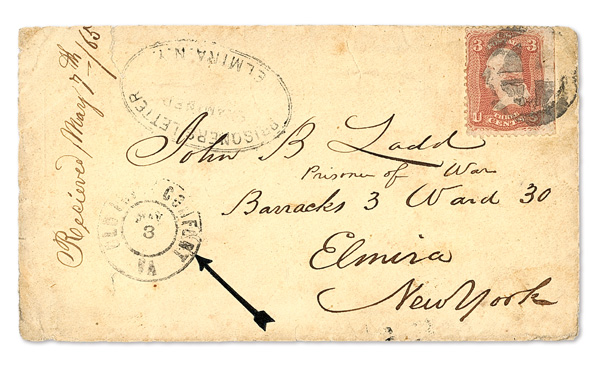 Recieved May 7th /65
PRISONER'S LETTER
EXAMINED
ELMIRA. N.Y.
3 3
U S
THREE
CENTS
John B Ladd
Prisoner of War
Barracks 3 Ward 30
Elmira
New York
OLD POINT COMFORT
MAY
3
VA